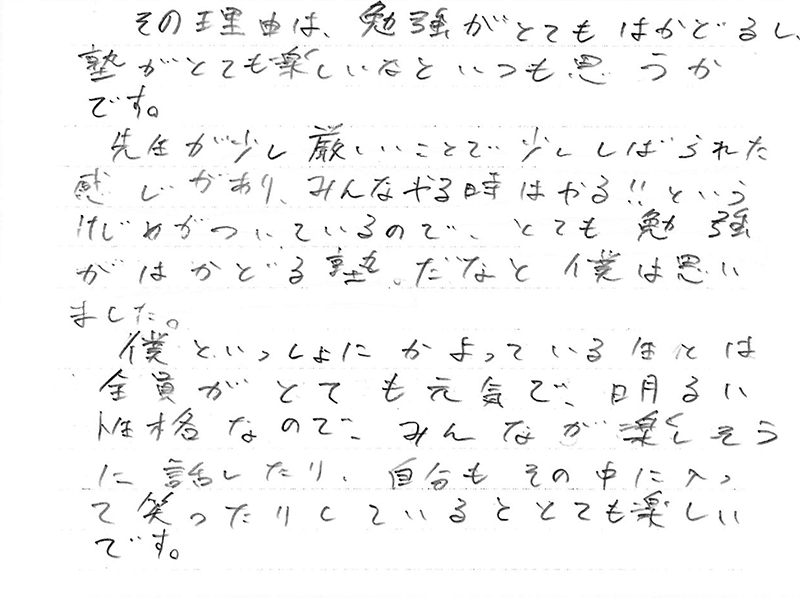 その理由は、勉強がとてもはかどるし、
塾がとても楽しいなといつも思うか
です。
先生が少し厳しいことで少ししばられた
感じがあり、みんなやる時はやる!!という
けじめがついているので、とても勉強
がはかどる塾。だなと僕は思い
ました。
僕といっしょにかよっているほとは
全員がとても元気で、明るい
性格なので、みんなが楽しそう
に話したり、自分もその中に入っ
て笑ったりしているととても楽しい
です。